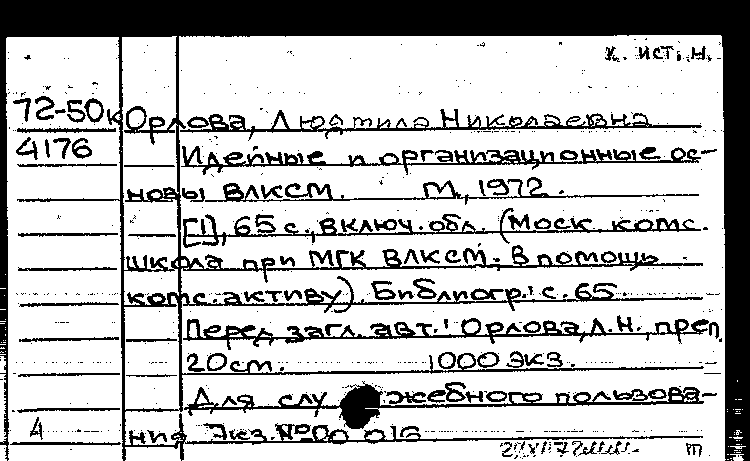 К. ИСТ. Н.
72-50к Орлова, Людмила Николаевна
4176 Идейные и организационные ос-
новы ВЛКСМ. М., 1972.
[1], 65 с., включ. обл. (Моск. комс.
школа при МГК ВЛКСМ. В помощь
комс. активу). Библиогр.: с. 65.
Перед загл. авт.: Орлова, Л. Н., преп.
20 см. 1000 экз.
Для служебного пользова-
4 ния Экз. №00 016
т